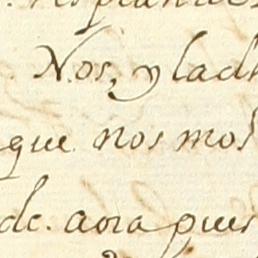 Nos, y lad
que nos mos
de. aora pues